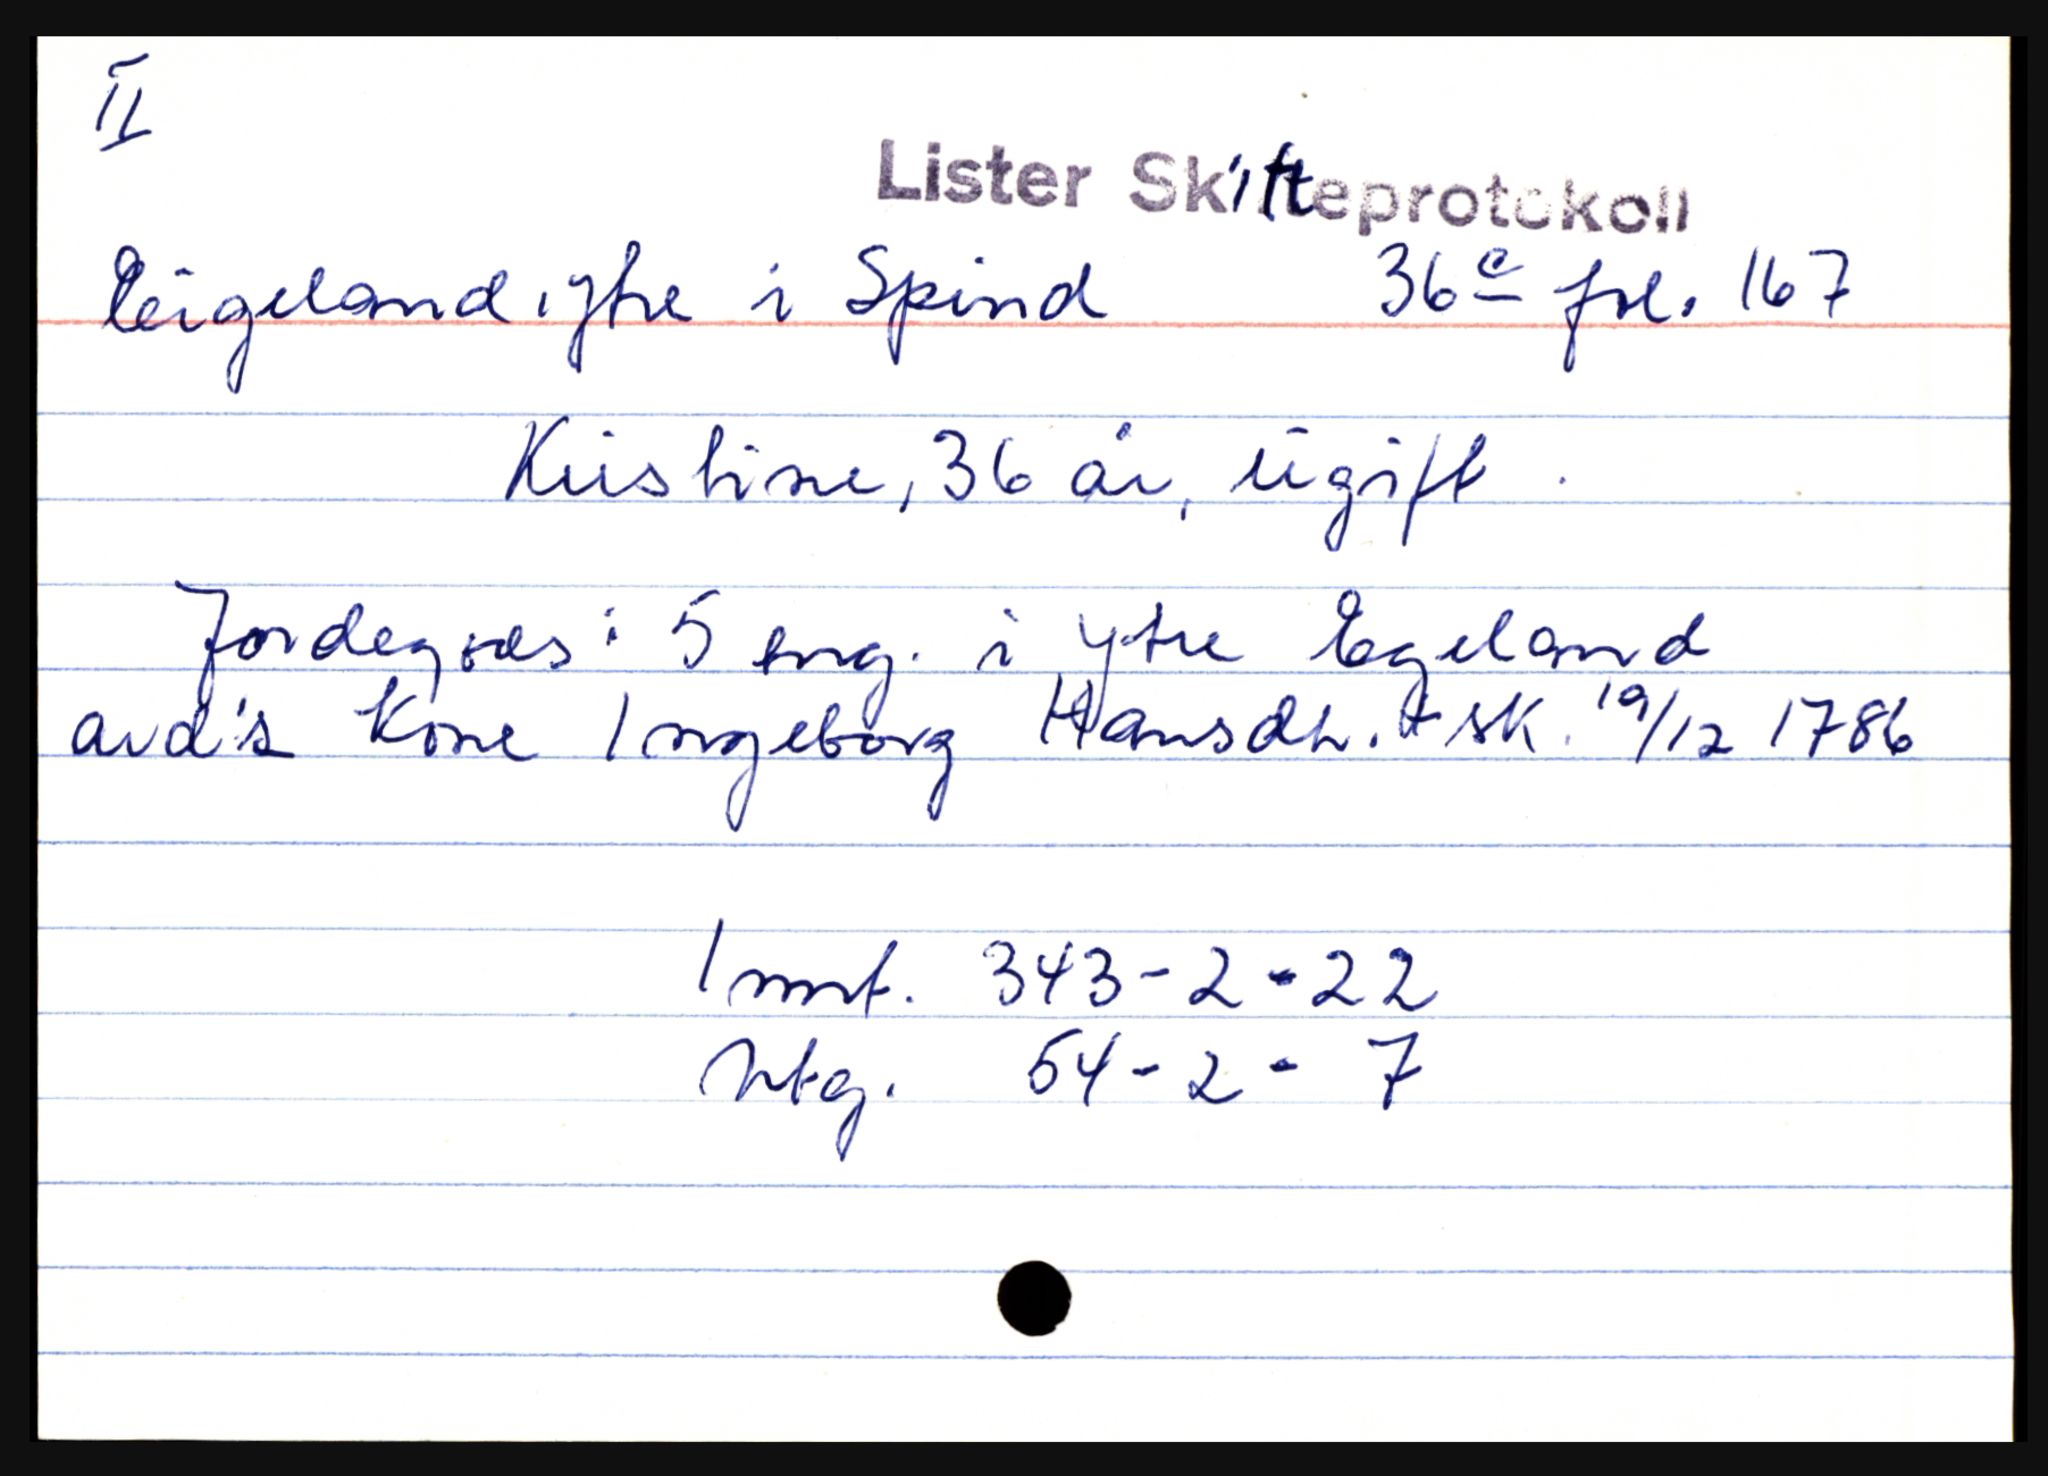 II
Lister Skifteprotokoll
Eigeland, ytre i Spind 36c fol. 167
Kristine, 36 år, ugift.
Jordegods: 5 eng. i Ytre Egeland
avd's kone Ingeborg Hansdtr. sk. 19/12 1786
Innt. 343-2-22
Utg. 54-2-7